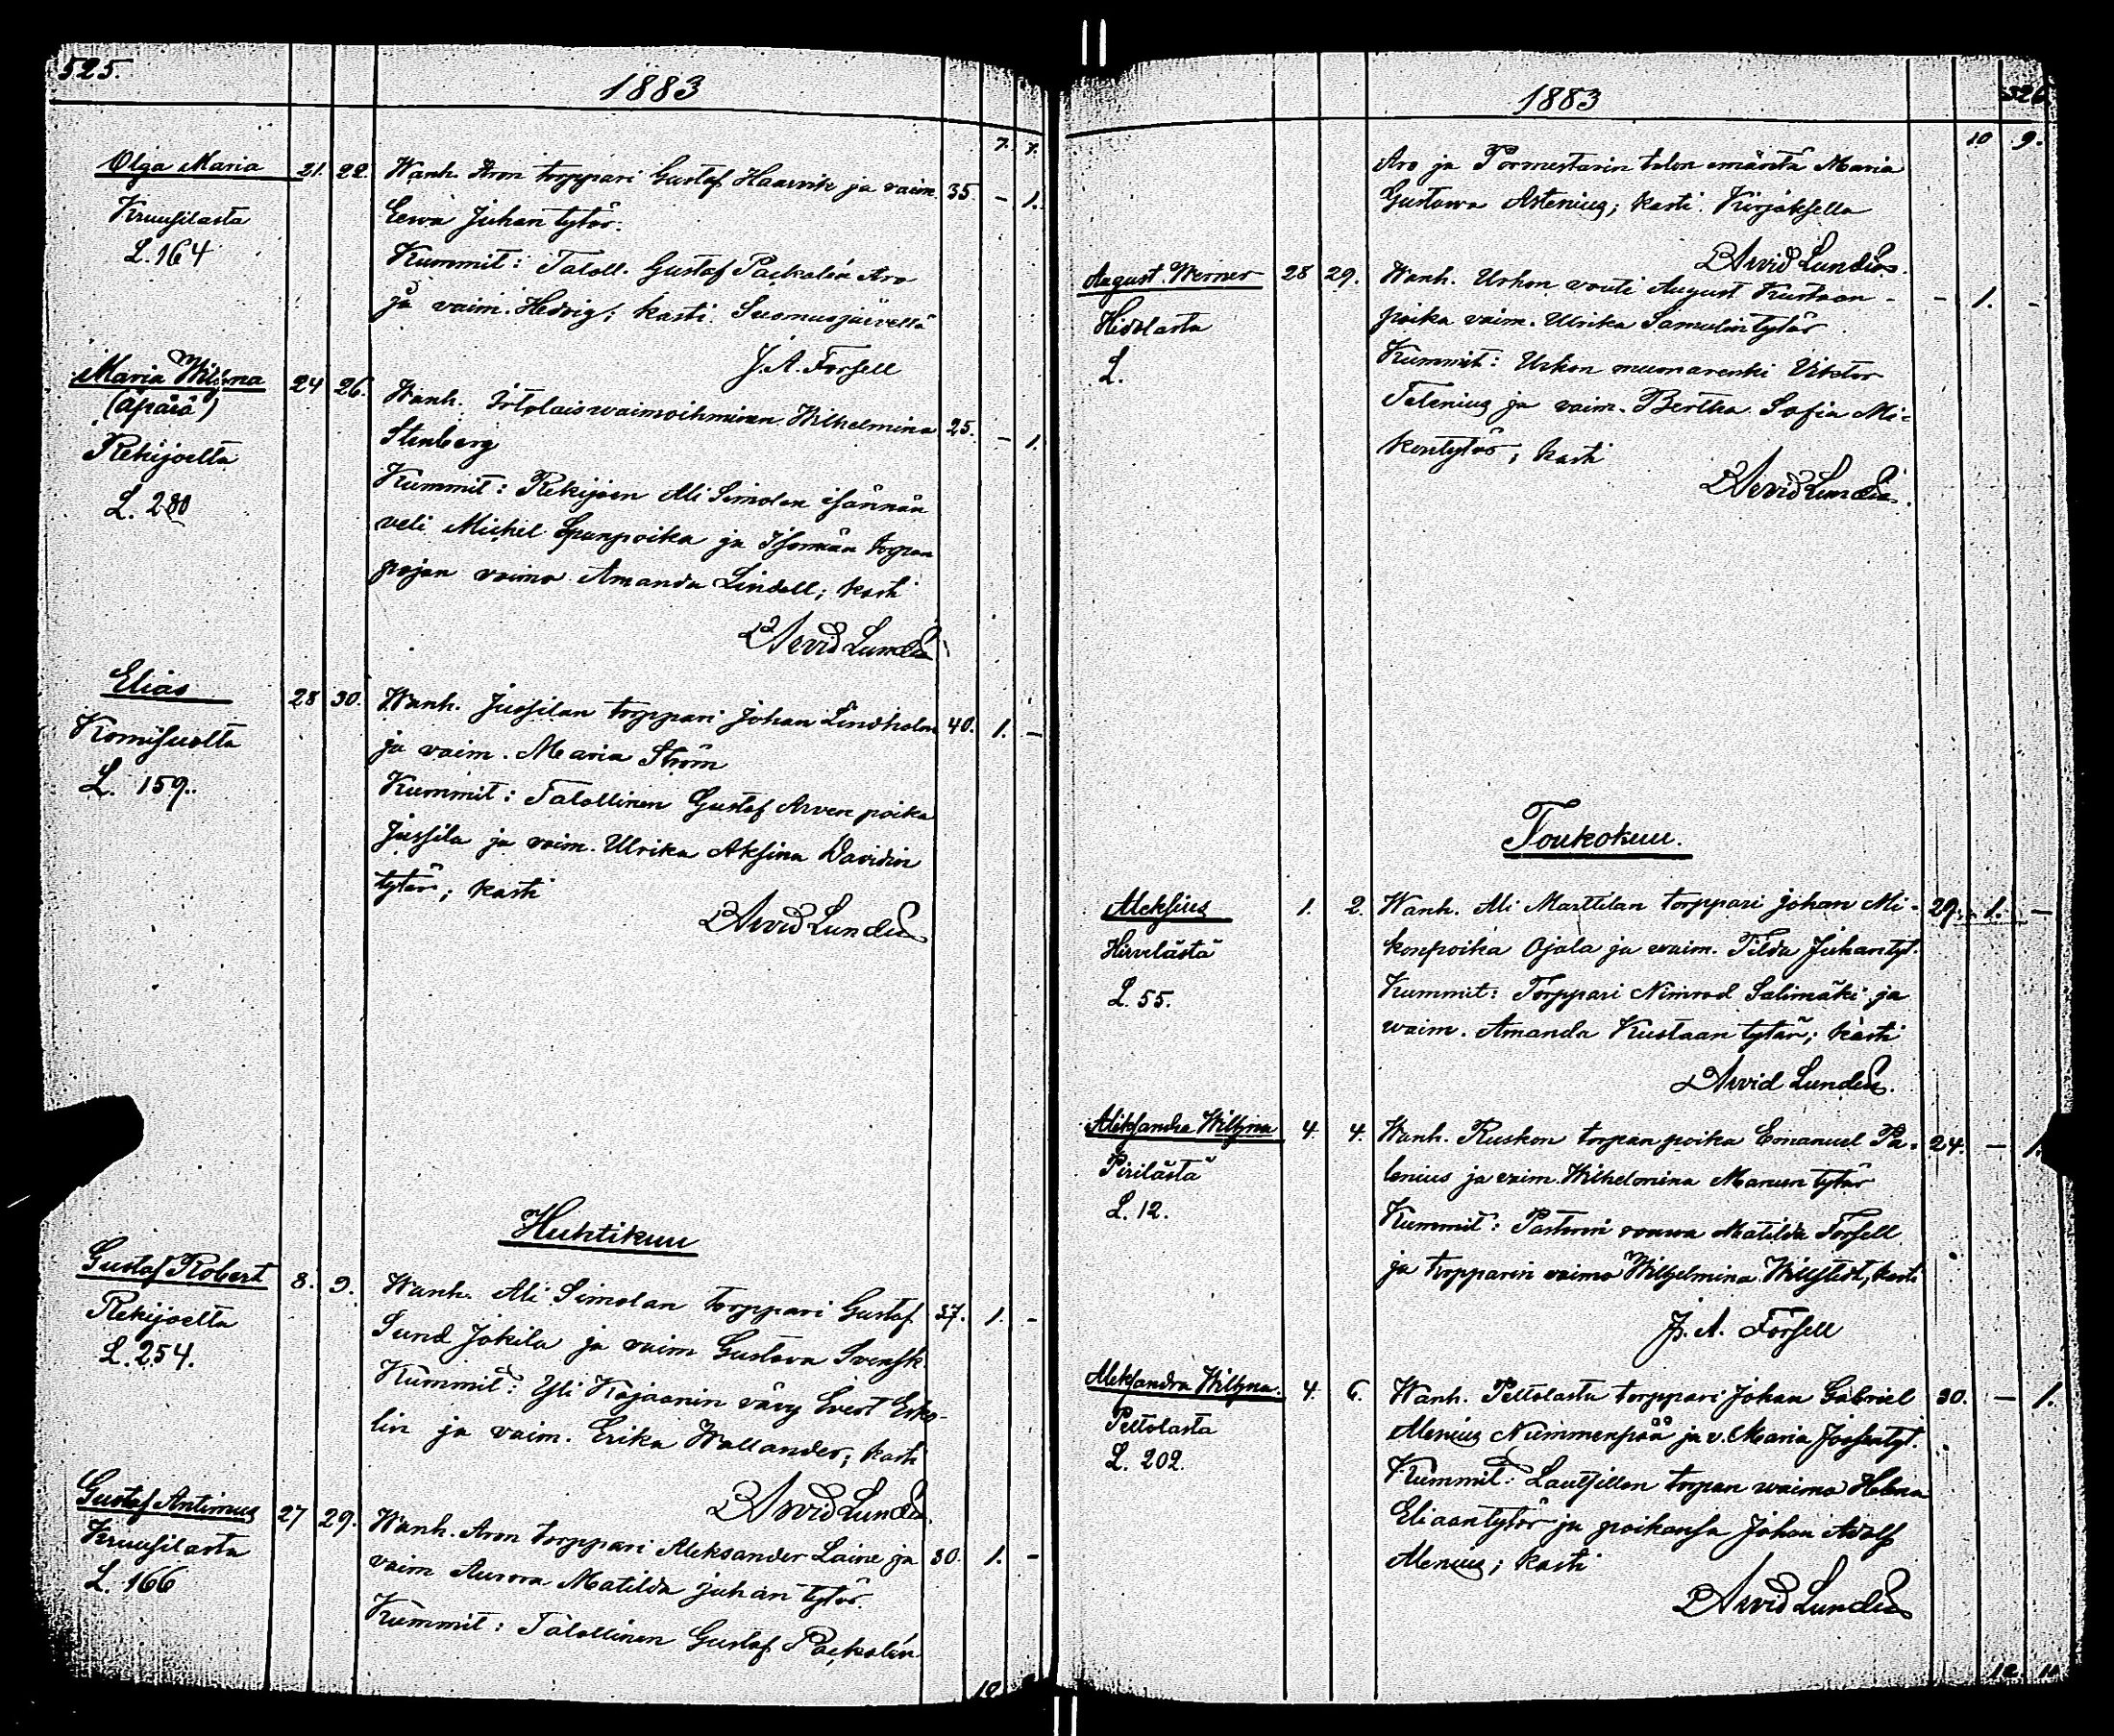 525.
1883
7. 7.
Olga Maria 21. 22. Wanh. Aron torppari Gustaf Haarvik ja vaim. 35. - 1.
Kruusilasta Eewa Juhan tytär.
L. 164 Kummit: Taloll. Gustaf Packalén Aro
ja vaim. Hedvig; kasti Suomusjärvellä
J. A. Forsell
Maria Wilhna 24 26. Wanh. Itolaiswaimoihminen Wilhelmina 25. - 1.
(äpärä) Stenberg
Rekijoelta Kummit: Rekijoen Ali Simolan isännän
L. 280 veli Michel Epranpoika ja torpan
pojan vaimo Amanda Lindell; kasti
Arvid Lundén
Elias 28 30. Wanh. Jussilan torppari Johan Lindholm 40. 1. -
Komisuolta ja vaim. Maria Ström
L. 159. Kummit: Talollinen Gustaf Arvenpoika
Jussila ja vaim. Ulrika Aksina Davidin
tytär; kasti
Arvid Lundén
Huhtikuu
Gustaf Robert 8. 9. Wanh. Ali Simolan torppari Gustaf 37. 1. -
Rekijoelta Sund Jokila ja vaim Gustava Svensk.
L. 254. Kummit: Yli Kajaanin vävy Evert Esko-
lin ja vaim. Erika Wallander; kasti
Arvid Lundén.
Gustaf Antimus 27 29. Wanh. Aron torppari Aleksander Laine ja 30. 1. -
Kruusilasta vaim Aurora Matilda Juhan tytär.
L. 166 Kummit: Talollinen Gustaf Packalén
10
1883
526
10 9.
Aro ja Pormestarin talon emäntä Maria
Gustawa Astenius; kasti Kirjaksella
Arvid Lundén.
August Werner 28 29. Wanh. Urhon vouti August Kustaan- - 1. -
Hidolasta poika vaim. Ulrika Samulintytär
L. Kummit: Urhon muonarenki Viktor
Telenius ja vaim. Bertha Sofia Mi-
kontytär; kasti
Arvid Lundén.
Toukokuu.
Aleksius 1. 2. Wanh. Ali Marttilan torppari Johan Mi- 29. 1. -
Hirvelästä konpoika Ojala ja waim. Tilda Juhantyt.
L. 55. Kummit: Torppari Nimrod Salimäki ja
waim. Amanda Kustaan tytär; kasti
Arvid Lundén.
Aleksandra Wilhna 4. 4. Wanh. Ruskon torpan poika Emanuel Pa- 24. - 1.
Pirilästä lenius ja vaim. Wilhelmina Manun tytär
L. 12. Kummit: Pastorin rouwa Matilda Forsell
ja torpparin vaimo Wilhelmina Willstedt, kasti
J. A. Forsell
Aleksandra Wilhna. 4. 6. Wanh. Peltolasta torppari Johan Gabriel 30. - 1.
Peltolasta Alenius Nummenpää ja v. Maria Joosentyt.
L. 202. Kummit: Lautsillan torpan waimo Helena
Eliaantytär ja poikansa Johan Adolf
Alenius; kasti
Arvid Lundén
12. 11.